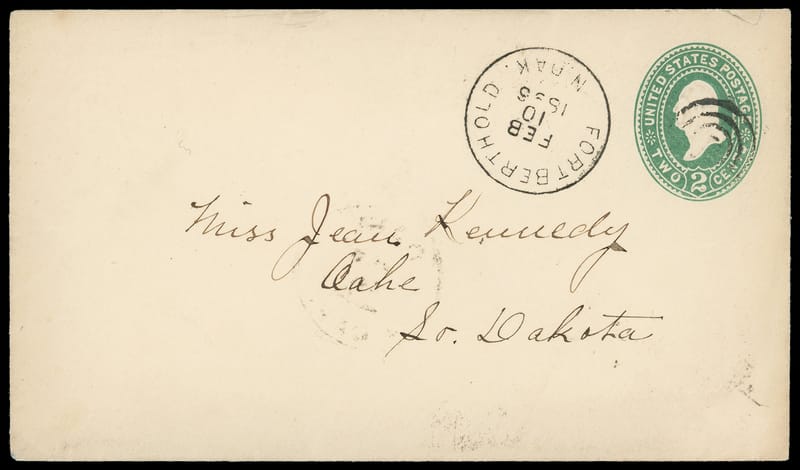 FORT BERTHOLD N. DAK.
FEB
10
UNITED STATES POSTAGE
TWO 2 CENTS
Miss Jean Kennedy
Oahe
So. Dakota